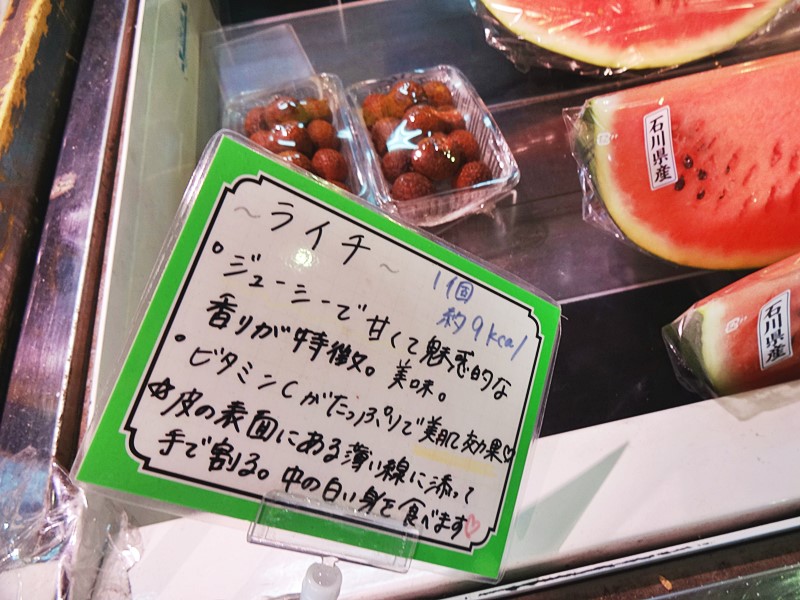 ～ライチ～
1個
約9kcal
・ジューシーで甘くて魅惑的な
香りが特徴。美味。
・ビタミンCがたっぷりで美肌効果♡
☆皮の表面にある薄い線に添って
手で割る。中の白い身を食べます♡
石川県産
石川県産